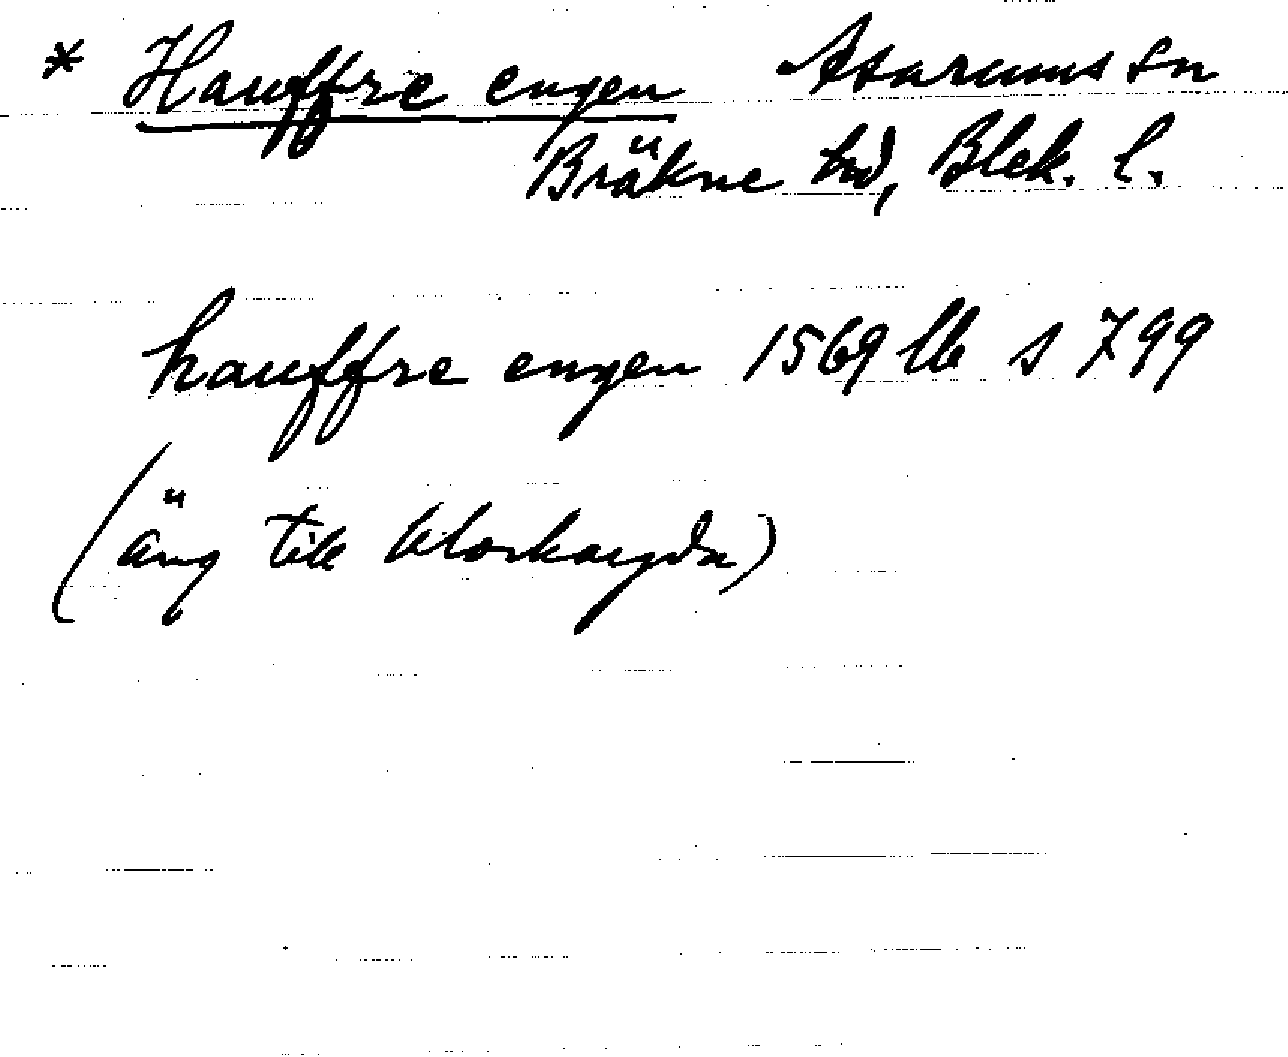 * Hauffre engen Asarums sn
Bräkne hd, Blek. l.
hauffre engen 1569 lb s 799
(äng till klockargda)